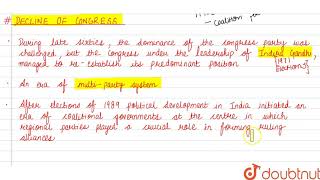 - Coalition
# DECLINE OF CONGRESS
- During late sixties, the dominance of the congress party was
challenged, but the Congress under the leadership of Indira Gandhi,
managed to re-establish its predominant position
(1971 Elections)
- An era of multi-party system
- After elections of 1989 political development in India initiated an
era of coalitional governments at the centre in which
regional parties played a crucial role in forming ruling
alliances
doubtnut